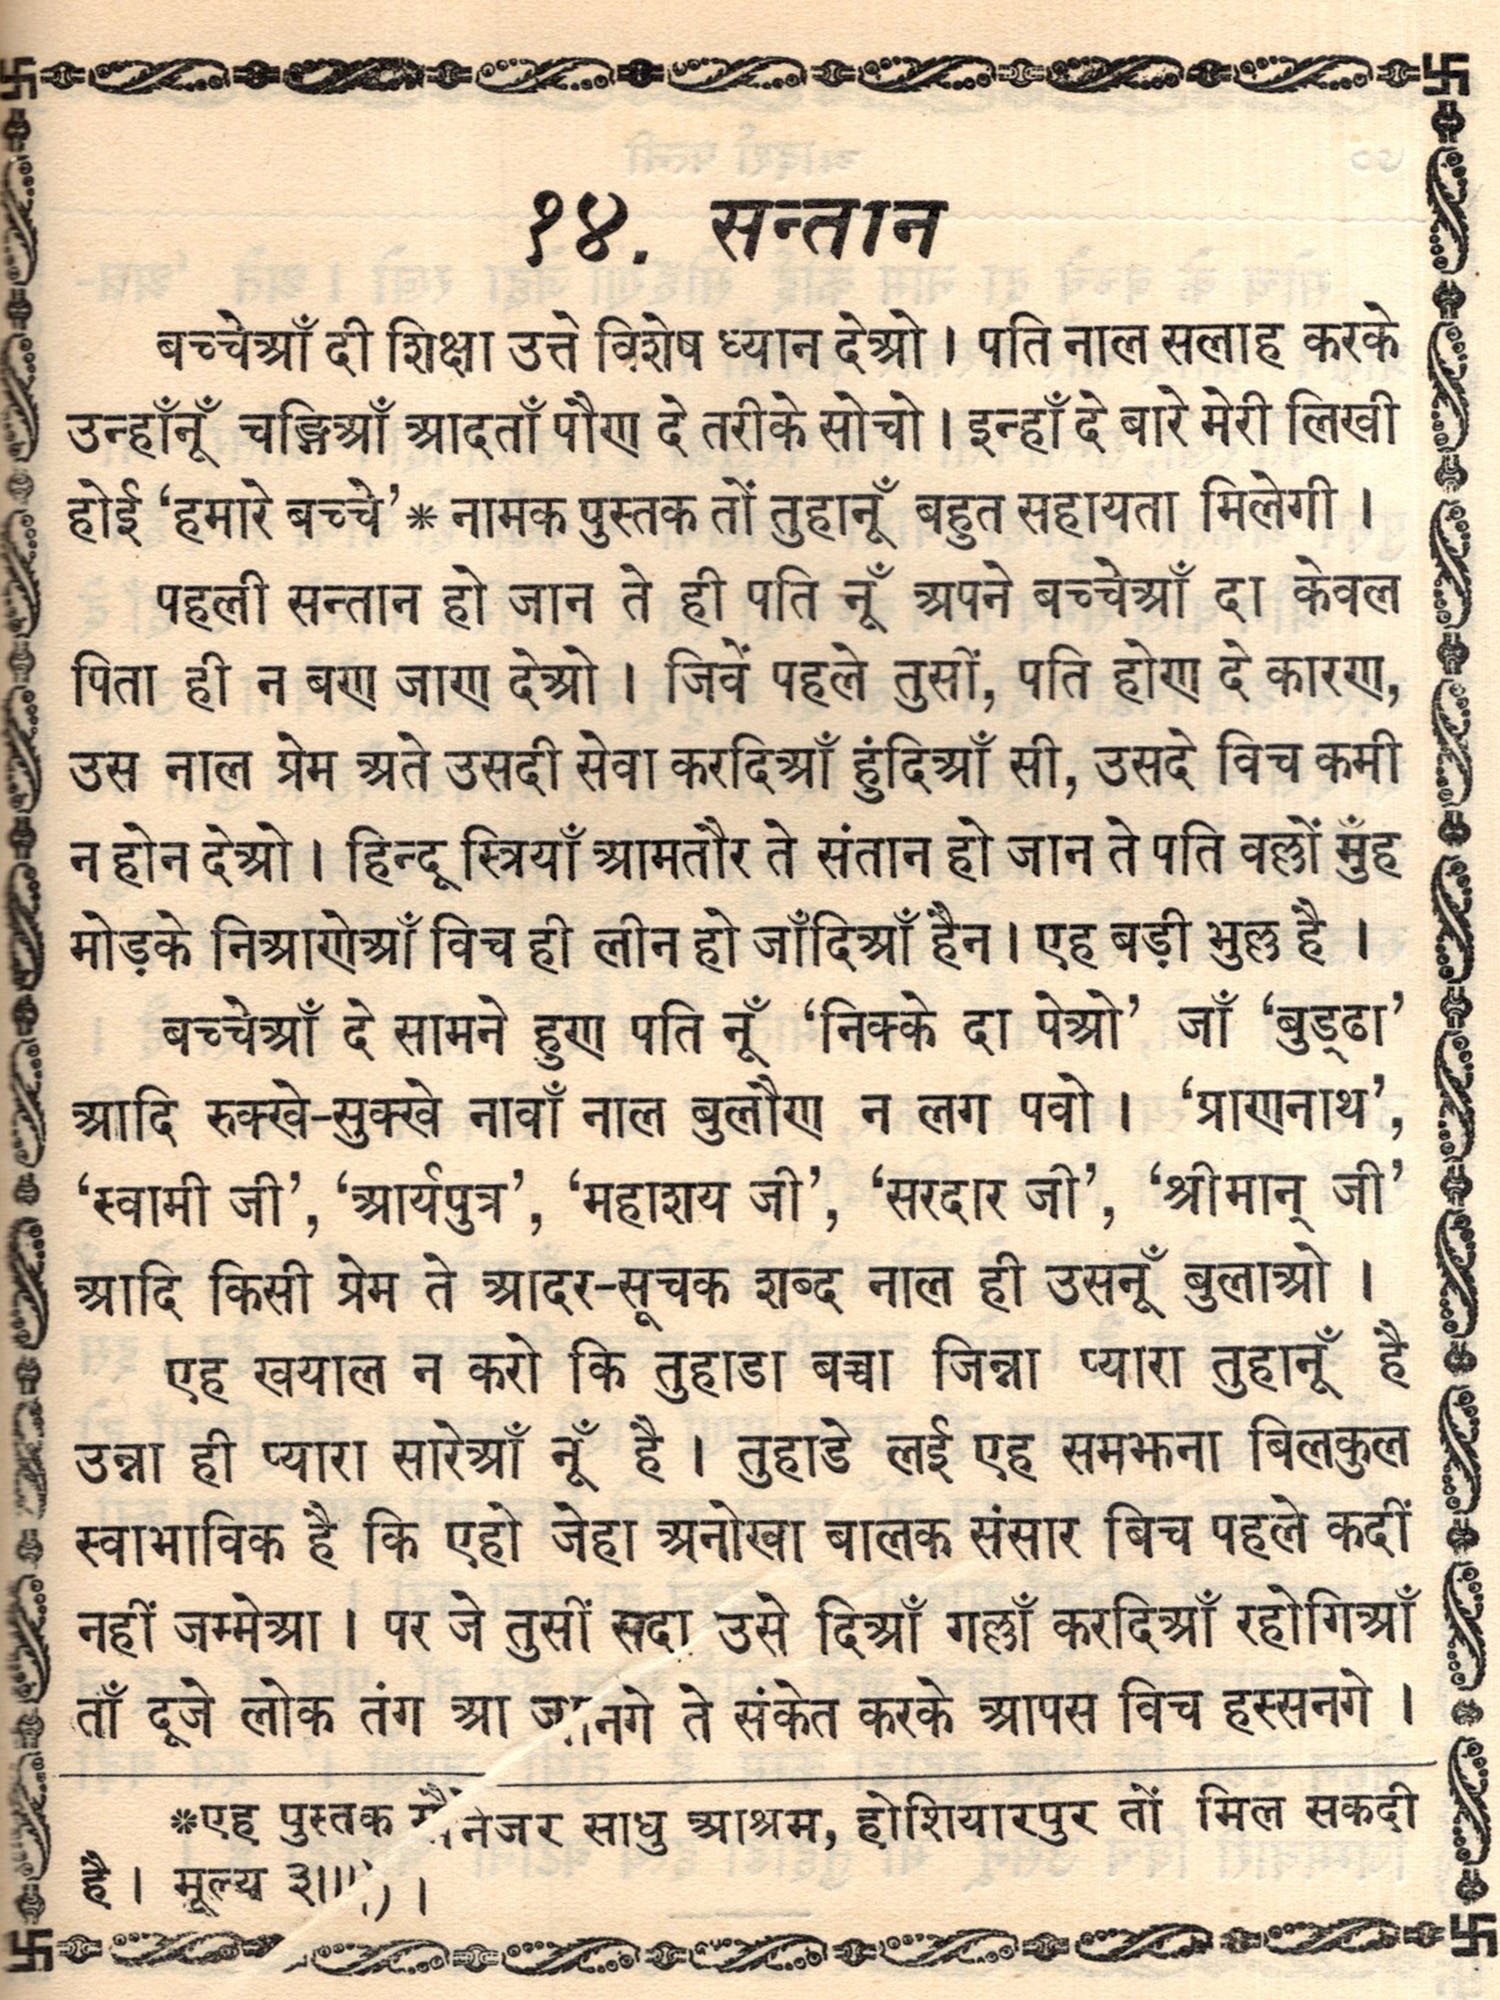 १४. सन्तान
बच्चेआँ दी शिक्षा उत्ते विशेष ध्यान देओ। पति नाल सलाह करके
उन्हाँनूँ चङ्गिआँ आदताँ पौण दे तरीके सोचो। इन्हाँ दे बारे मेरी लिखी
होई ‘हमारे बच्चे’* नामक पुस्तक तों तुहानूँ बहुत सहायता मिलेगी।
पहली सन्तान हो जान ते ही पति नूँ अपने बच्चेआँ दा केवल
पिता ही न बण जाण देओ। जिवें पहले तुसीं, पति होण दे कारण,
उस नाल प्रेम अते उसदी सेवा करदिआँ हुंदिआँ सी, उसदे विच कमी
न होन देओ। हिन्दू स्त्रियाँ आमतौर ते संतान हो जान ते पति वल्लों मुँह
मोड़के निआणेआँ विच ही लीन हो जाँदिआँ हैन। एह बड़ी भुल्ल है।
बच्चेआँ दे सामने हुण पति नूँ ‘निक्के दा पेओ’ जाँ ‘बुड्ढा’
आदि रुक्खे-सुक्खे नावाँ नाल बुलौण न लग पवो। ‘प्राणनाथ’,
‘स्वामी जी’, ‘आर्यपुत्र’, ‘महाशय जी’, ‘सरदार जी’, ‘श्रीमान् जी’
आदि किसी प्रेम ते आदर-सूचक शब्द नाल ही उसनूँ बुलाओ।
एह खयाल न करो कि तुहाडा बच्चा जिन्ना प्यारा तुहानूँ है
उन्ना ही प्यारा सारेआँ नूँ है। तुहाडे लई एह समझना बिलकुल
स्वाभाविक है कि एहो जेहा अनोखा बालक संसार बिच पहले कदीं
नहीं जम्मेआ। पर जे तुसीं सदा उसे दिआँ गल्लाँ करदिआँ रहोगिआँ
ताँ दूजे लोक तंग आ जानगे ते संकेत करके आपस विच हस्सनगे।
*एह पुस्तक मैनेजर साधु आश्रम, होशियारपुर तों मिल सकदी
है। मूल्य